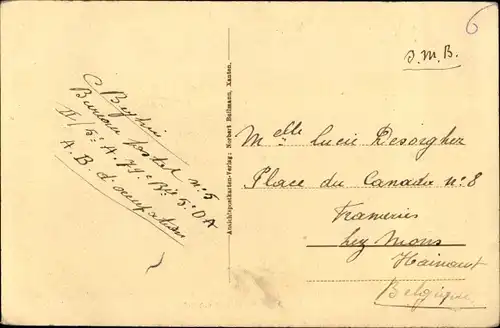 6
S.M.B.
C Beghin
Bureau postal n° 5
II/5e A.
A.B. d'occupation
Ansichtspostkarten-Verlag: Norbert Hellmann, Xanten.
Melle Lucie Desorgher
Place du Canada n° 8
Frameries
lez Mons
Hainaut
Belgique